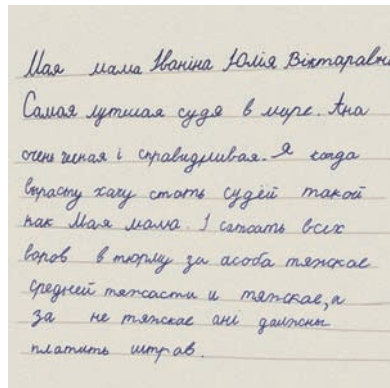 Мая мама Іваніна Юлія Віктаравна
Самая лутшая судя в мире. Ана
очень чесная і справидливая. Я когда
вырасту хачу стать судей такой
как Мая мама. І сажать всех
воров в тюрму за асоба тяжкае
средней тяжасти и тяжкае, а
за не тяжкае ані должны
платить штрав.